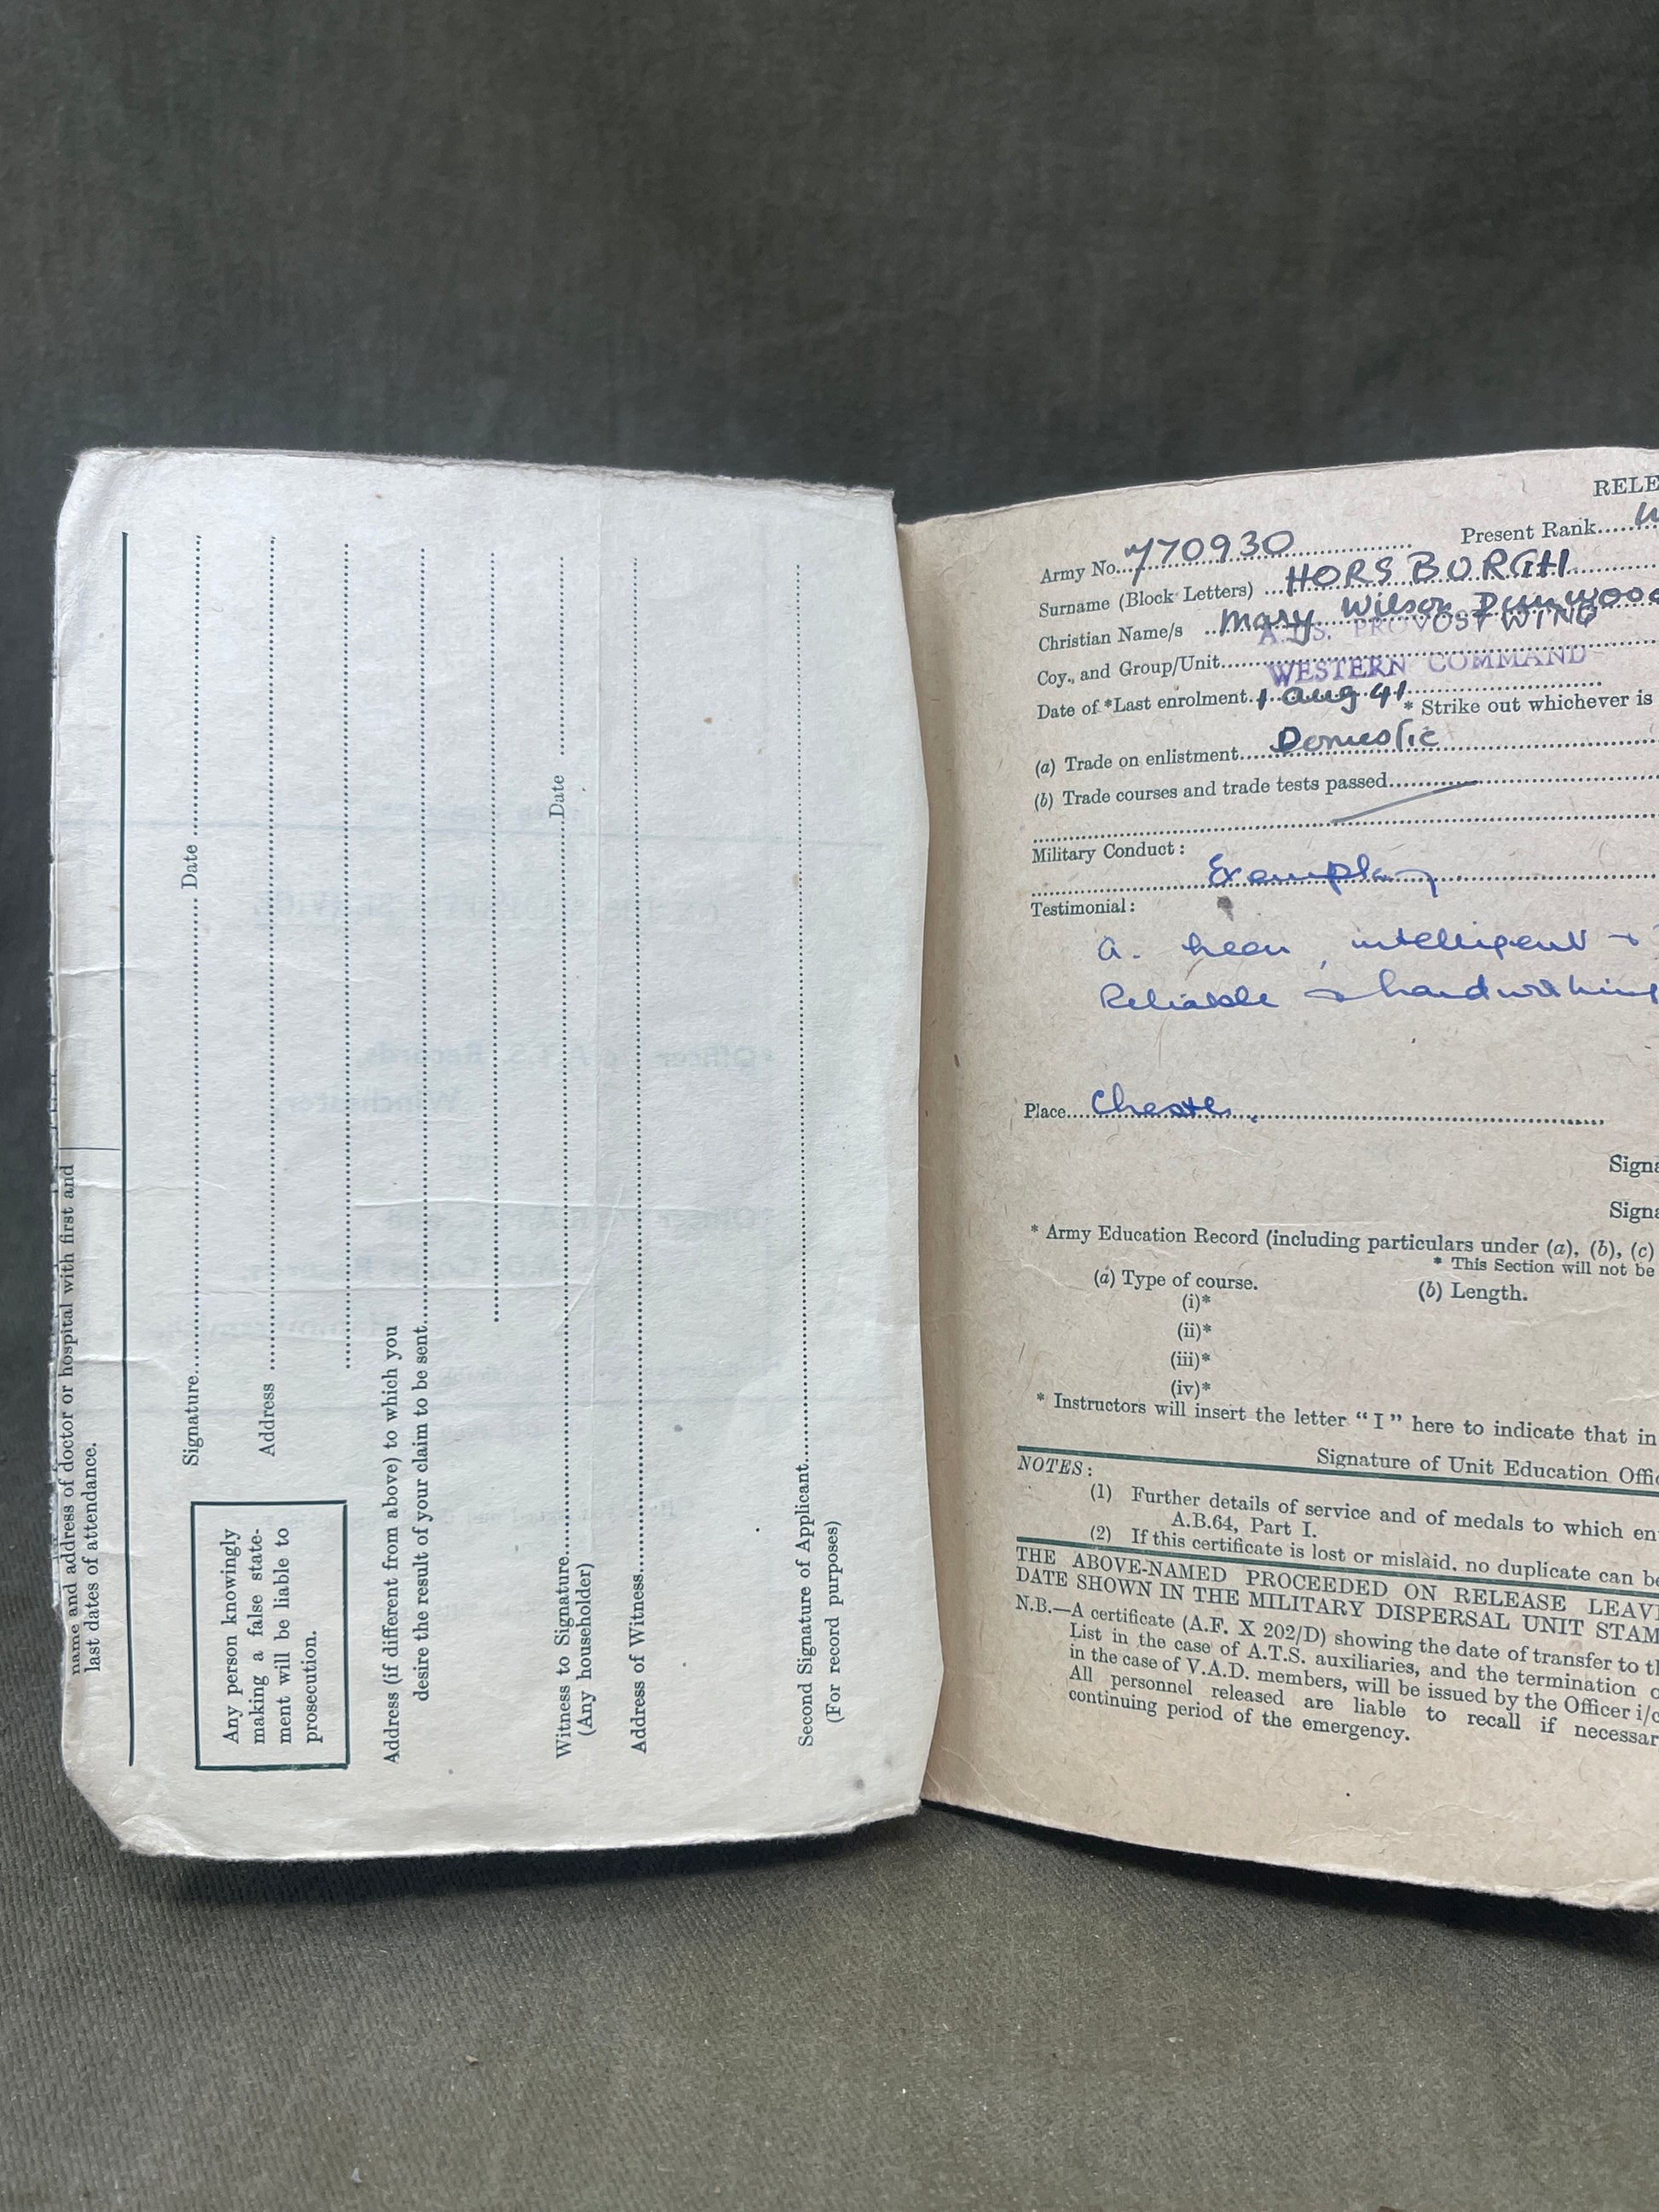 name and address of doctor or hospital with first and
last dates of attendance.
Signature.................... Date ....................
Address ....................
Any person knowingly
making a false state-
ment will be liable to
prosecution.
Address (if different from above) to which you
desire the result of your claim to be sent....................
Witness to Signature.................... Date ....................
(Any householder)
Address of Witness....................
Second Signature of Applicant....................
(For record purposes)
RELE
Army No. 770930 Present Rank
Surname (Block Letters) HORSBURGH
Christian Name/s Mary Wilson Dunwood
A.T.S. PROVOST WING
Coy., and Group/Unit
WESTERN COMMAND
Date of *Last enrolment 1 Aug 41
* Strike out whichever is
(a) Trade on enlistment Domestic
(b) Trade courses and trade tests passed
Military Conduct :
Exemplary
Testimonial :
A keen, intelligent +
Reliable & hardworking
Place Chester
Signa
Signa
* Army Education Record (including particulars under (a), (b), (c)
* This Section will not be
(a) Type of course. (b) Length.
(i)*
(ii)*
(iii)*
(iv)*
* Instructors will insert the letter “ I ” here to indicate that in
Signature of Unit Education Offic
NOTES :
(1) Further details of service and of medals to which en
A.B.64, Part I.
(2) If this certificate is lost or mislaid, no duplicate can be
THE ABOVE-NAMED PROCEEDED ON RELEASE LEAV
DATE SHOWN IN THE MILITARY DISPERSAL UNIT STAM
N.B.—A certificate (A.F. X 202/D) showing the date of transfer to th
List in the case of A.T.S. auxiliaries, and the termination o
in the case of V.A.D. members, will be issued by the Officer i/c
All personnel released are liable to recall if necessar
continuing period of the emergency.